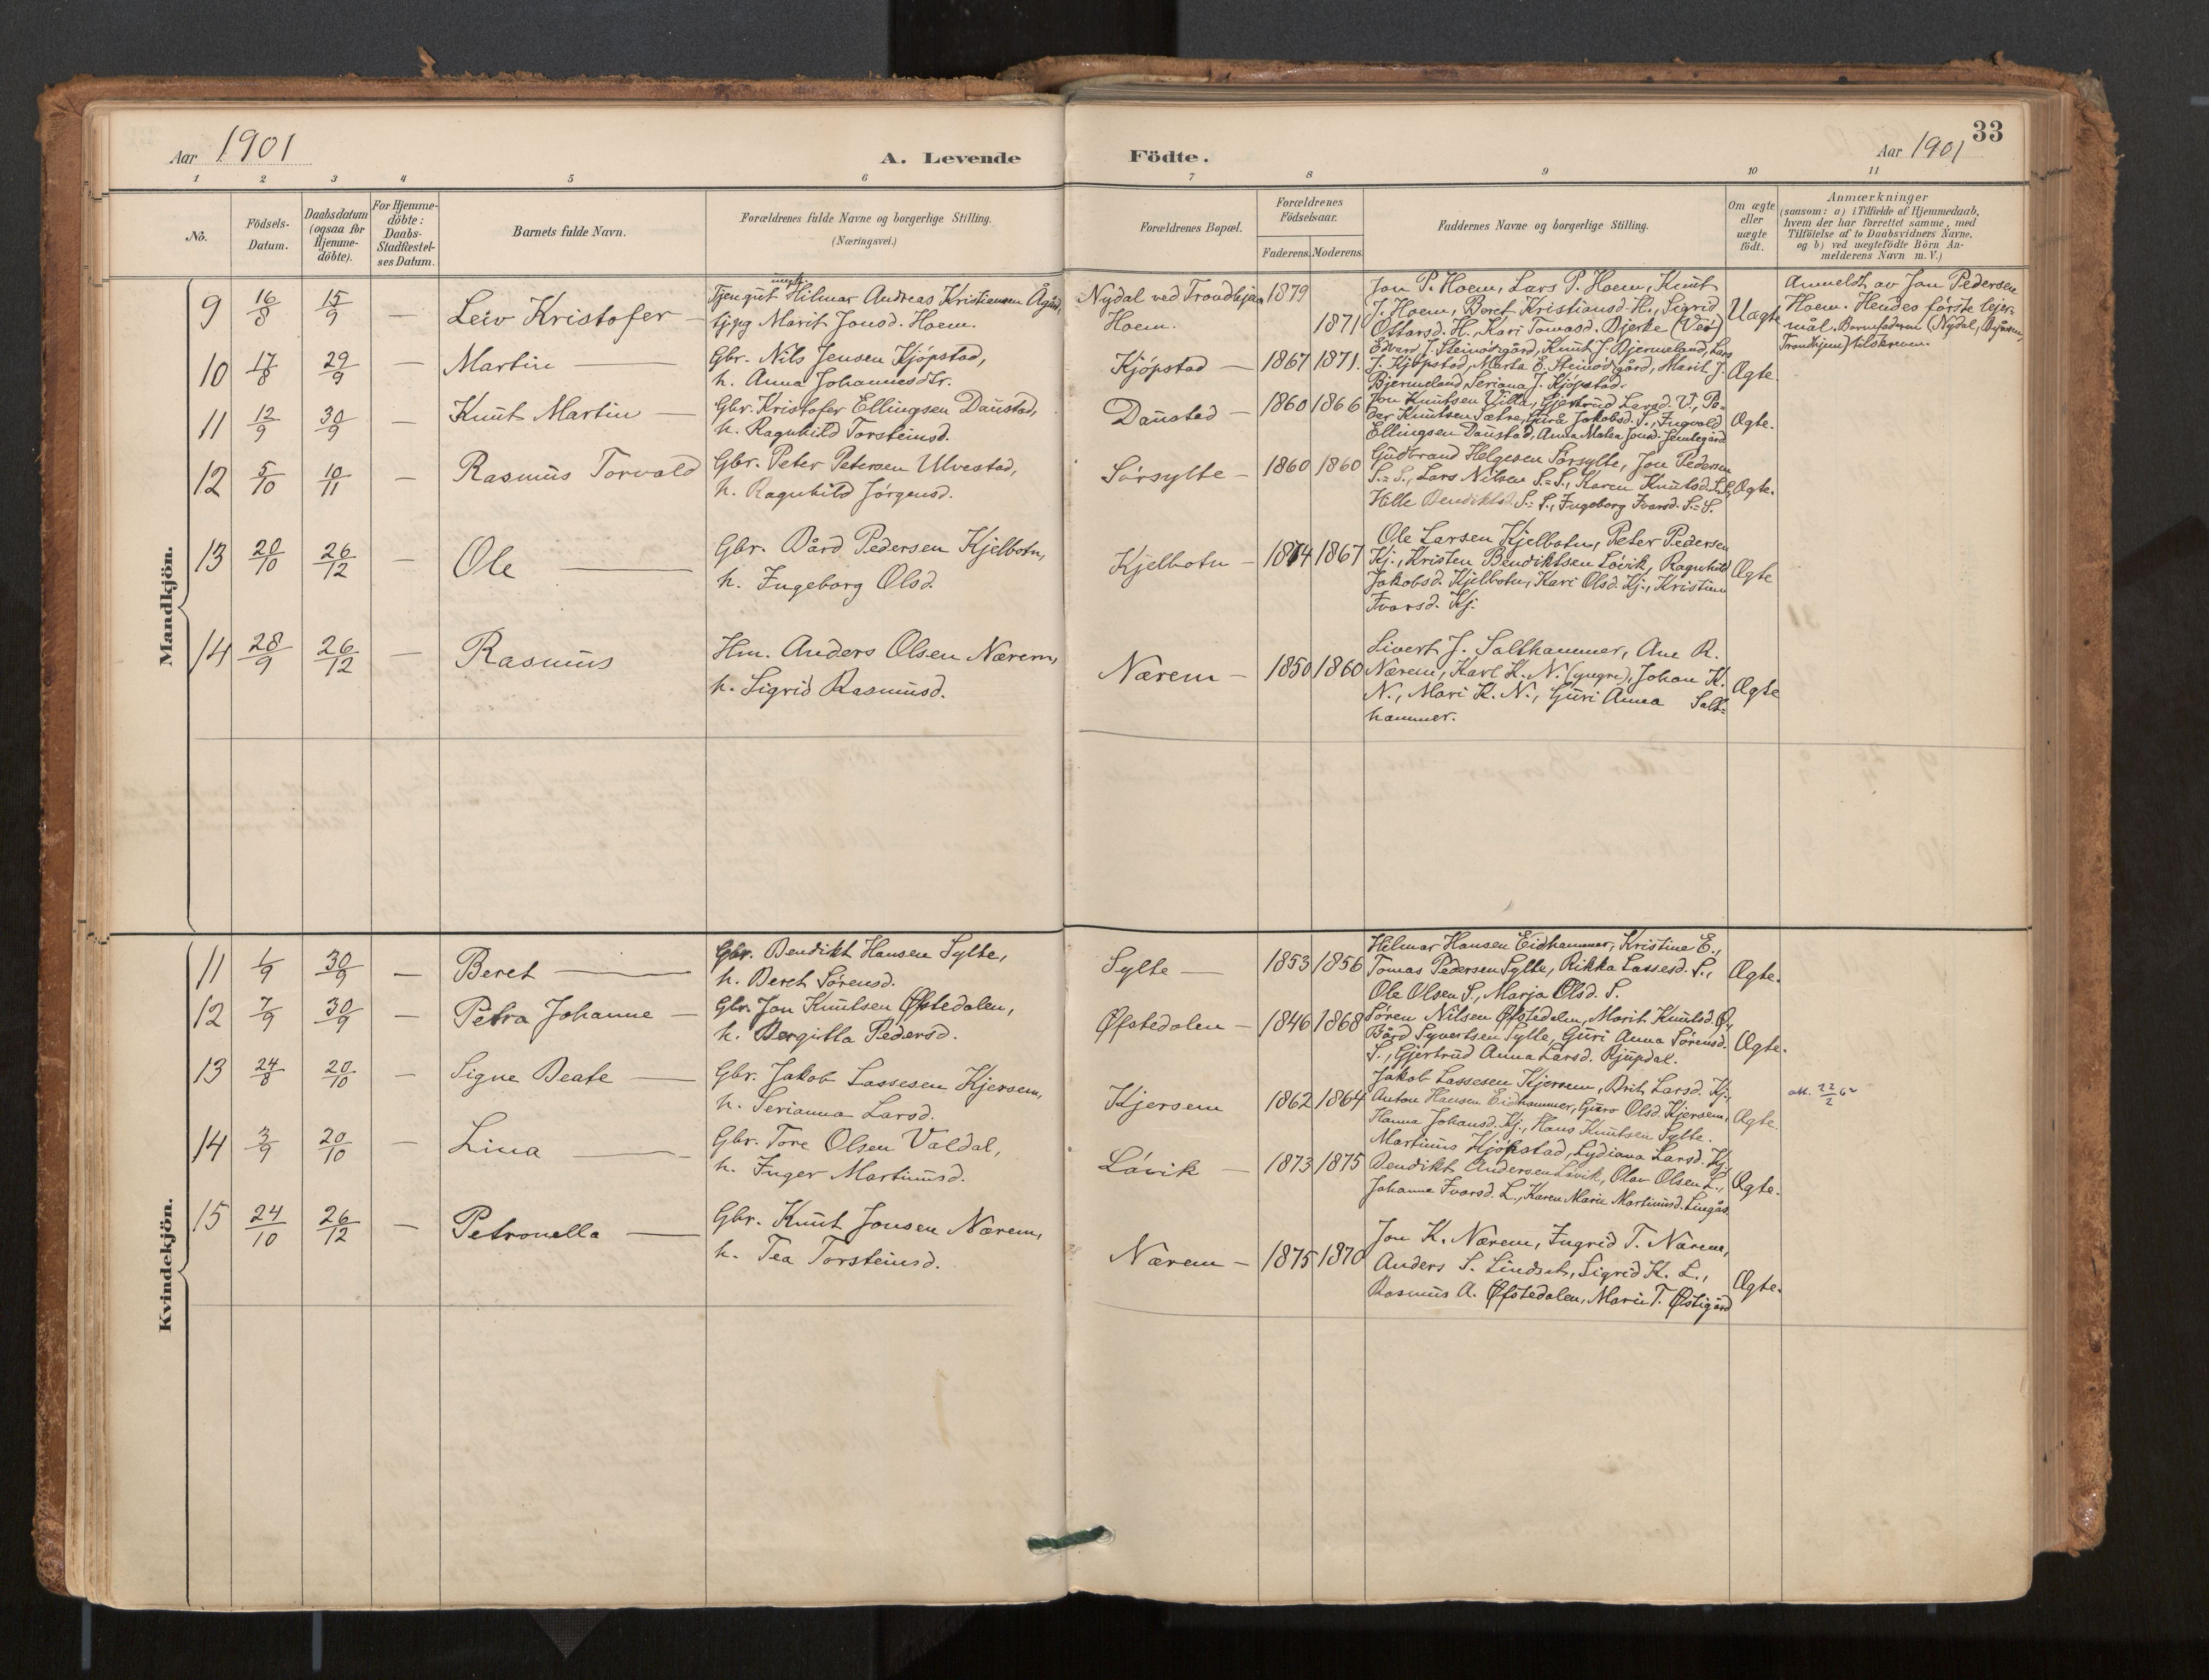 33
Aar 1901
A. Levende Födte.
Aar 1901
1 2 3 4 5 6 7 8 9 10 11
No.
Födsels-Datum.
Daabsdatum (ogsaa for Hjemme-döbte).
For Hjemme-döbte: Daabs-Stadfæstel-ses Datum.
Barnets fulde Navn.
Forældrenes fulde Navne og borgerlige Stilling.
(Næringsvei.)
Forældrenes Bopæl.
Forældrenes Födselsaar.
Faderens. Moderens.
Faddernes Navne og borgerlige Stilling.
Om ægte eller uægte födt.
Anmærkninger
(saasom: a) i Tilfælde af Hjemmedaab,
hvem der har forrettet samme, med
Tilföielse af to Daabsvidners Navne,
og b) ved uægtefödte Börn An-
melderens Navn m. V.)
Mandkjön.
9 16/8 15/9 — Leiv Kristofer —
ungk.
Tjengut Hilmar Andreas Kristiansen Ågård,
tjpg Marit Jonsd. Hoem.
Nydal ved Trondhjem
Hoem.
1879
1871
Jon P. Hoem, Lars P. Hoem, Knut
J. Hoem, Beret Kristiansd. H., Sigrid
Ottarsd. H., Kari Tomasd. Bjerke (Veö)
Uægte
Anmeldt av Jon Pedersen
Hoem. Hendes første lejer-
mål. Barnefaderen (Nydal,
Trondhjem) tilskreven.
10 17/8 29/9 — Martin —
Gbr. Nils Jensen Kjöpstad,
h. Anna Johannesdtr.
Kjöpstad — 1867 1871.
Edvard J. Steinödegård, Knut J. Bjermeland, Lars
J. Kjöpstad, Marta E. Steinödegård, Marit J.
Bjermeland, Seriana J. Kjöpstad.
Ægte.
11 12/9 30/9 — Knut Martin —
Gbr. Kristofer Ellingsen Daustad,
h. Ragnhild Torsteinsd.
Daustad — 1860 1866
Jon Knutsen Villa, Gjertrud Larsd. V., Pe-
der Knutsen Sætre, Jakobsd. S., Ingvald
Ellingsen Daustad, Anna Matea Jonsd.
Ægte.
12 5/10 10/11 — Rasmus Torvald
Gbr. Peter Petersen Ulvestad,
h. Ragnhild Jörgensd.
Sörsylte — 1860 1860
Gudbrand Helgesen Sörsylte, Jon Pedersen
S.=S., Lars Nilsen S.=S., Karen Knutsd. S.S.,
Hille Bendiktsd. S.=S., Ingeborg Ivarsd. S.=S.
Ægte.
13 20/10 26/12 — Ole —
Gbr. Bård Pedersen Kjelbotn,
h. Ingeborg Olsd.
Kjelbotn — 1874 1867
Ole Larsen Kjelbotn, Peter Pedersen
Kj., Kristen Bendiktsen Lövik, Ragnhild
Jakobsd. Kjelbotn, Kari Olsd. Kj., Kristian
Ivarsd. Kj.
Ægte
14 28/9 26/12 — Rasmus
Hm. Anders Olsen Nærem,
h. Sigrid Rasmusd.
Nærem — 1850 1860
Sivert J. Salthammer, Ane R.
Nærem, Karl K. N. (yngre), Johan K.
N., Mari K. N., Guri Anna Salt=
hammer.
Ægte
Kvindekjön.
11 1/9 30/9 — Beret —
Gbr. Bendikt Hansen Sylte,
h. Beret Sörensd.
Sylte — 1853 1856
Hilmar Hansen Eidhammer, Kristine E.,
Tomas Pedersen Sylte, Rikka Lassesd. S.,
Ole Olsen S., Marja Olsd. S.
Ægte.
12 7/9 30/9 — Petra Johanne —
Gbr. Jon Knutsen Øfstedalen,
h. Bergitta Pedersd.
Øfstedalen — 1846 1868
Sören Nilsen Øfstedalen, Marit Knutsd. Ø.,
Bård Syvertsen Sylte, Guri Anna Sörensd.
S., Gjertrud Anna Larsd. Rjupdal.
Ægte.
13 24/8 20/10 — Signe Beate —
Gbr. Jakob Lassesen Kjersem,
h. Serianna Larsd.
Kjersem 1862 1864
Jakob Lassesen Kjersem, Brit Larsd. Kj.,
Anton Hansen Eidhammer, Guro Olsd. Kjersem,
Hanna Johansd. Kj., Hans Knutsen Sylte.
Ægte.
att. 22/2 62
14 3/9 20/10 — Lina —
Gbr. Tore Olsen Valdal,
h. Inger Martinusd.
Lövik — 1873 1875
Martinus Kjöpstad, Lydiana Larsd. Kj.,
Bendikt Andersen Lövik, Olav Olsen L.,
Johanna Ivarsd. L., Karen Marie Martinusd. Lingås.
Ægte.
15 24/10 26/12 — Petronella —
Gbr. Knut Jonsen Nærem,
h. Tea Torsteinsd.
Nærem — 1875 1870
Jon K. Nærem, Ingrid T. Nærem,
Anders S. Lindset, Sigrid K. L.,
Rasmus A. Øfstedalen, Marie T. Østigård
Ægte.